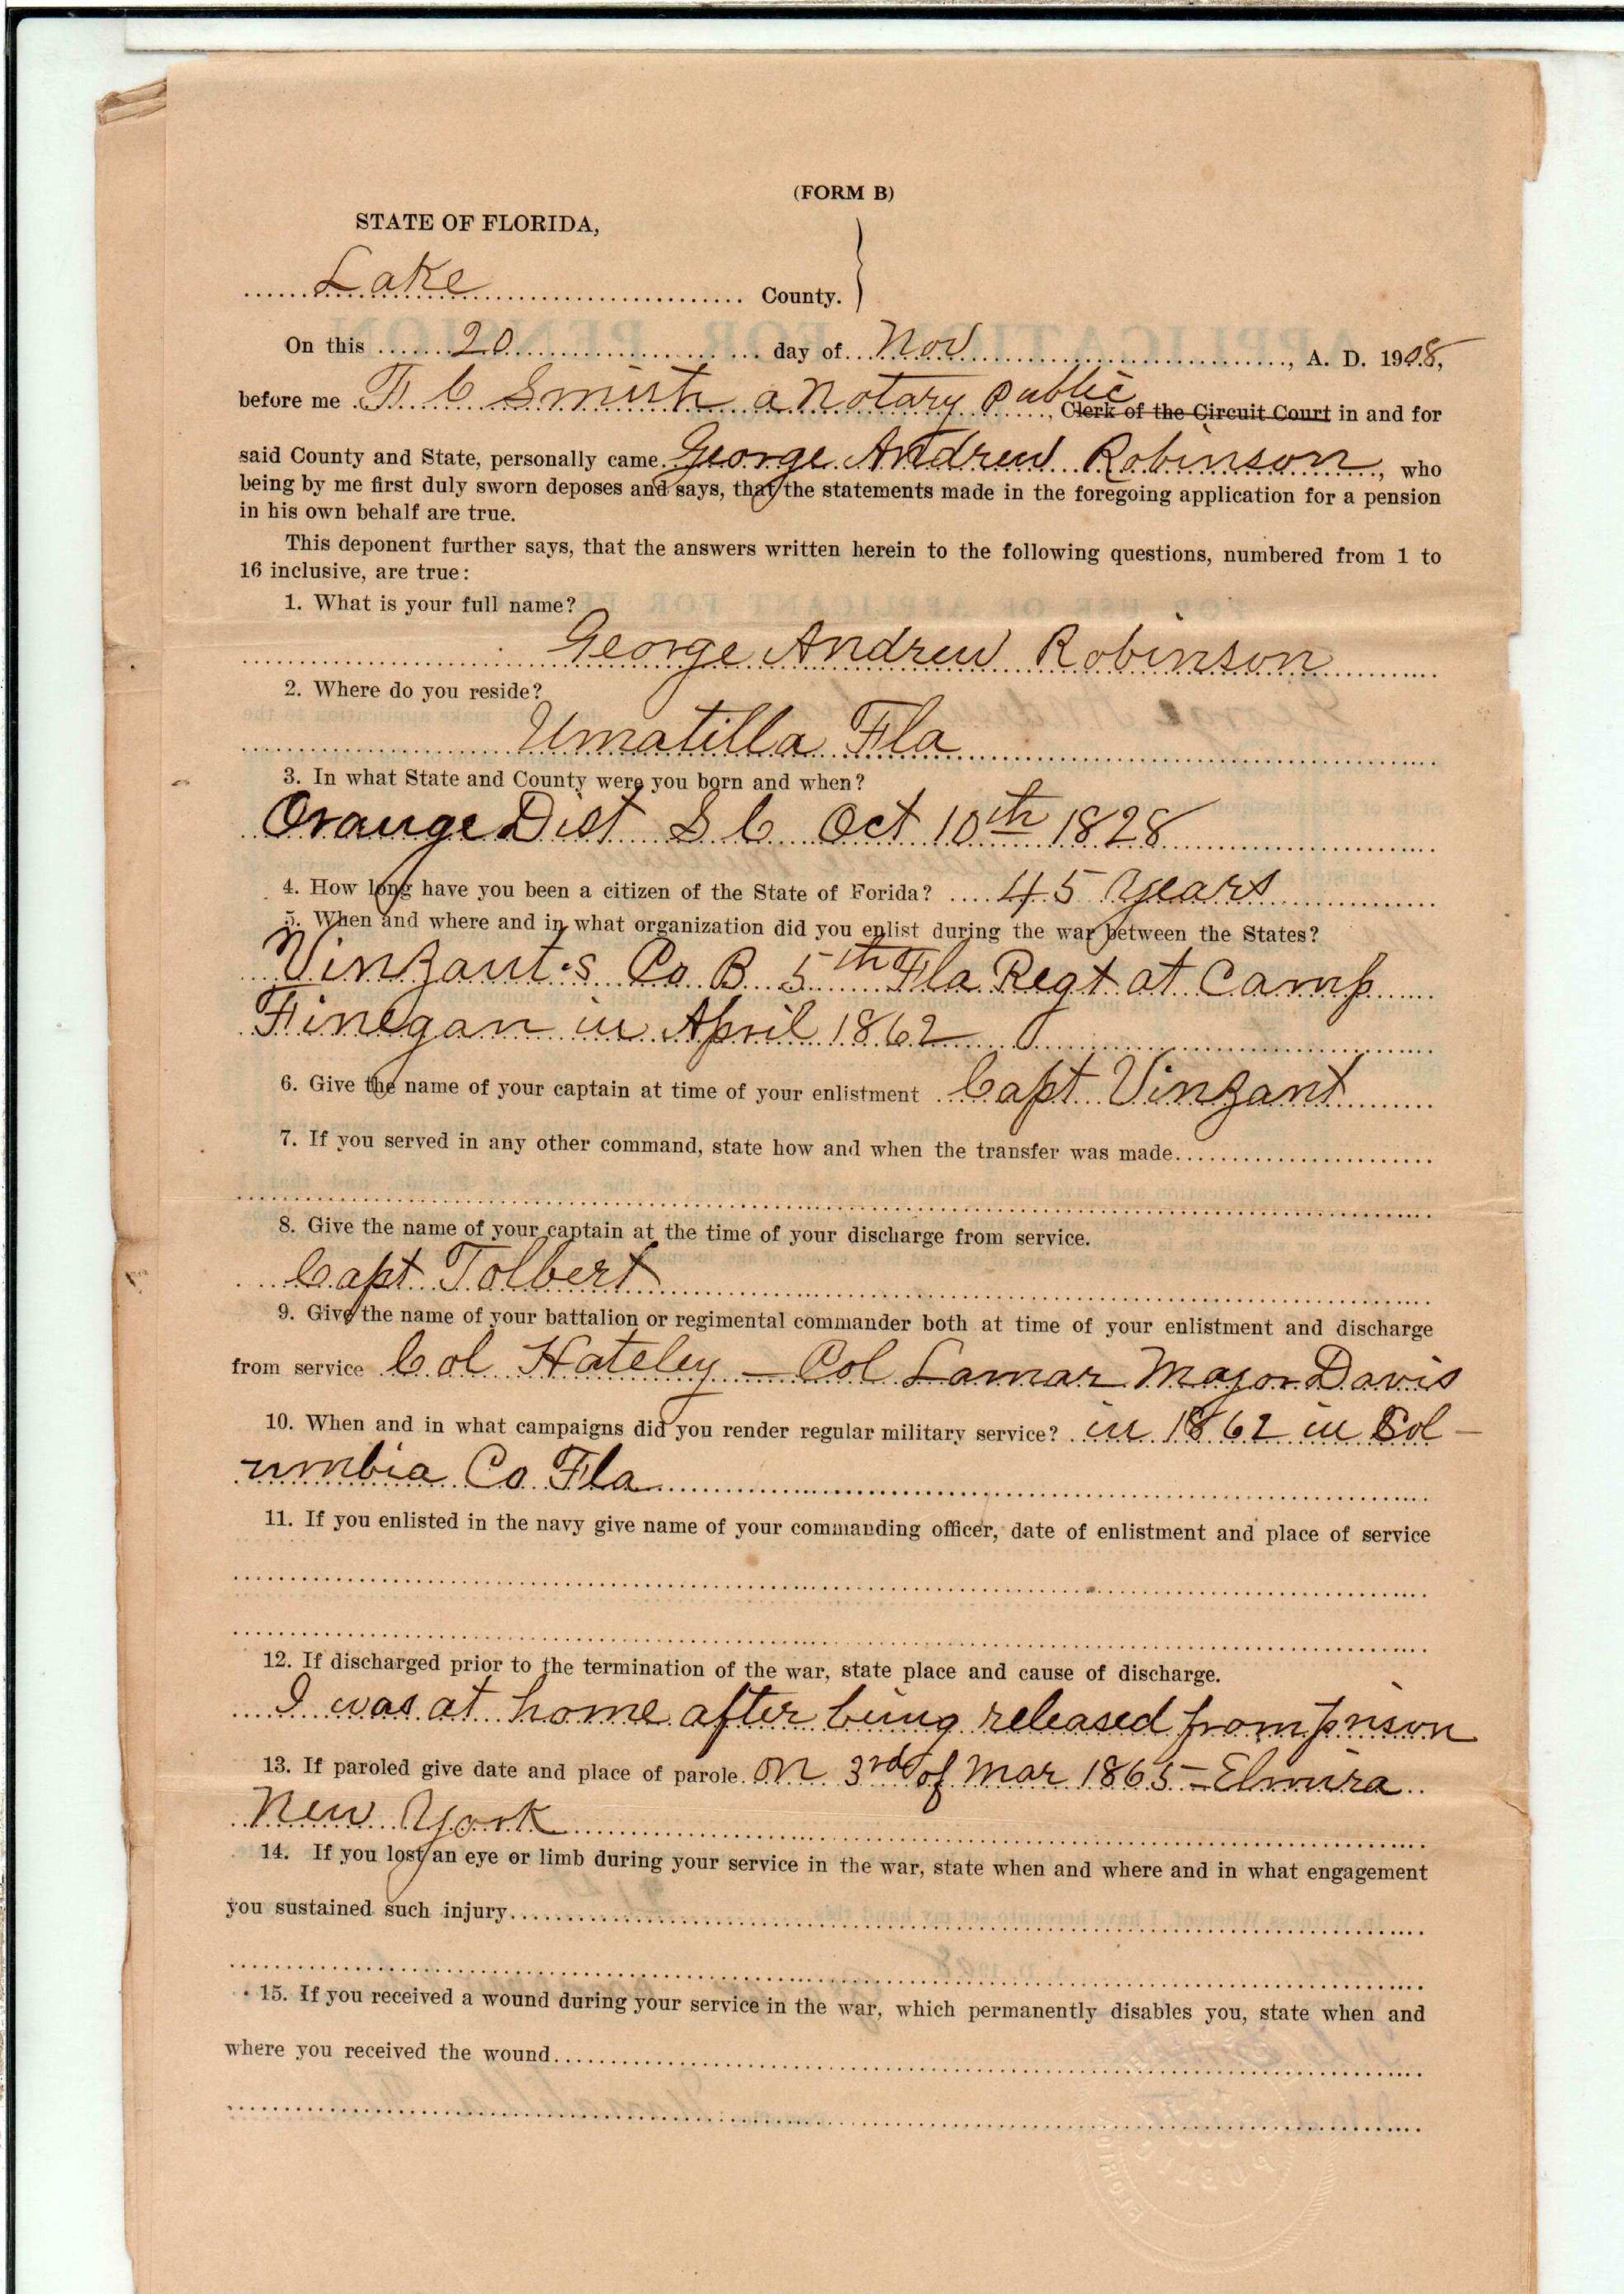 (FORM B)
STATE OF FLORIDA,
Lake County.
On this 20 day of Nov, A. D. 1908,
before me F. C Smith a Notary Public, Clerk of the Circuit Court in and for
said County and State, personally came George Andrew Robinson, who
being by me first duly sworn deposes and says, that the statements made in the foregoing application for a pension
in his own behalf are true.
This deponent further says, that the answers written herein to the following questions, numbered from 1 to
16 inclusive, are true:
1. What is your full name?
George Andrew Robinson
2. Where do you reside?
Umatilla Fla
3. In what State and County were you born and when?
Orange Dist S C Oct 10th 1828
4. How long have you been a citizen of the State of Forida? 45 Years
5. When and where and in what organization did you enlist during the war between the States?
Vinzant's Co B 5th Fla Regt at Camp
Finegan in April 1862
6. Give the name of your captain at time of your enlistment Capt Vinzant
7. If you served in any other command, state how and when the transfer was made
8. Give the name of your captain at the time of your discharge from service.
Capt Tolbert
9. Give the name of your battalion or regimental commander both at time of your enlistment and discharge
from service Col Hateley — Col Lamar Major Davis
10. When and in what campaigns did you render regular military service? in 1862 in Col-
umbia Co Fla
11. If you enlisted in the navy give name of your commanding officer, date of enlistment and place of service
12. If discharged prior to the termination of the war, state place and cause of discharge.
I was at home after being released from prison
13. If paroled give date and place of parole. on 3rd of Mar 1865 - Elmira
New York
14. If you lost an eye or limb during your service in the war, state when and where and in what engagement
you sustained such injury
15. If you received a wound during your service in the war, which permanently disables you, state when and
where you received the wound